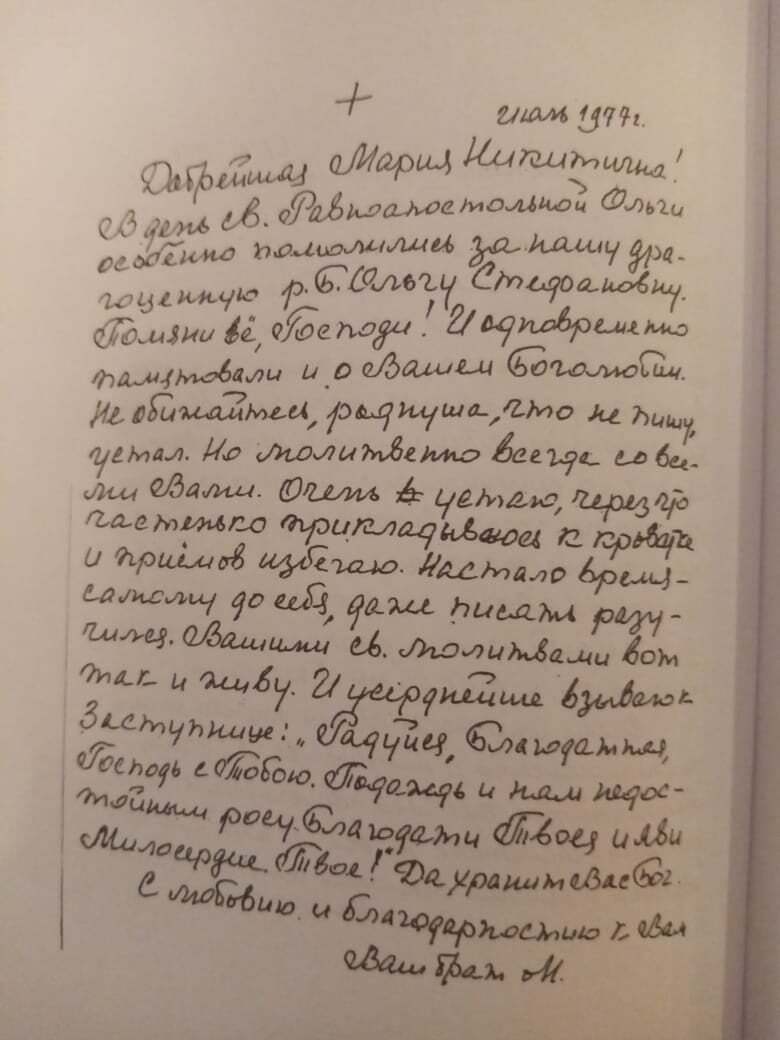 +
Июль 1977г.
Добрейшая Мария Никитична!
В день св. Равноапостольной Ольги
особенно помолились за нашу дра-
гоценную р. Б. Ольгу Стефановну.
Помяни её, Господи! И одновременно
памятовали и о Вашем Боголюбии.
Не обижайтесь, роднуша, что не пишу,
устал. Но молитвенно всегда со все-
ми Вами. Очень устаю, через что
частенько прикладываюсь к кроватке
и приёмов избегаю. Настало время-
самому до себя, даже писать разу-
чился. Вашими св. молитвами вот
так и живу. И усерднейше взываю к
Заступнице: „Радуйся, Благодатная,
Господь с Тобою. Подаждь и нам недос-
тойным росу Благодати Твоея и яви
Милосердие Твое!" Да хранит Вас Бог.
С любовию и благодарностию к Вам
Ваш брат И.